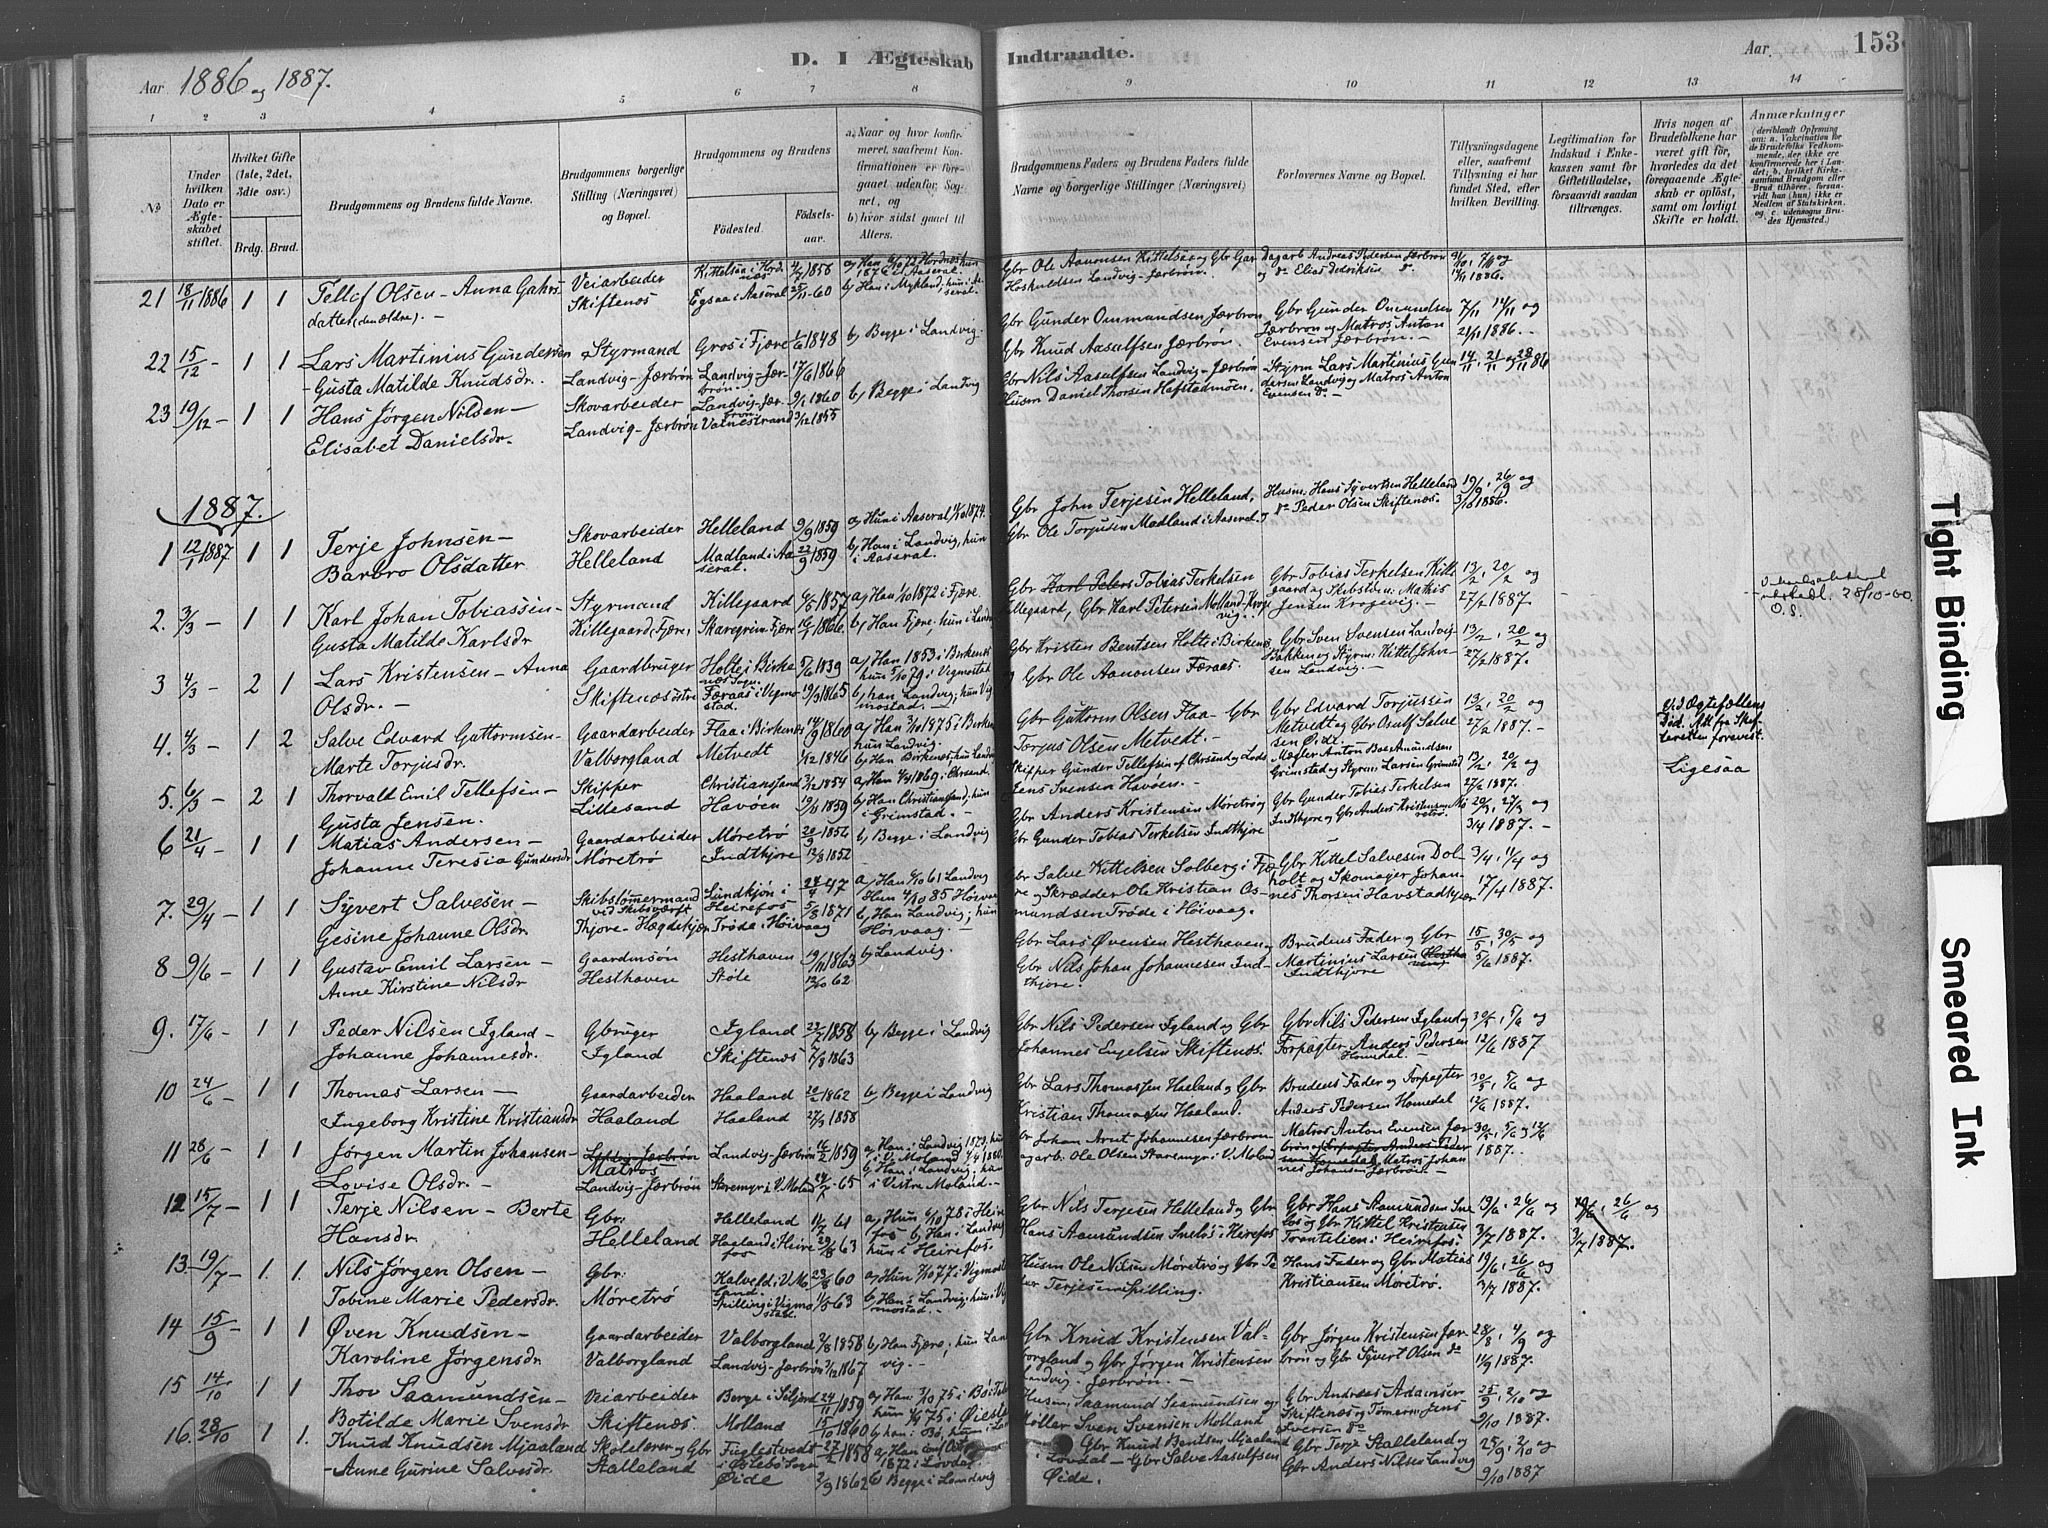 D. I Ægteskab Indtraadte.
Aar 1886 og 1887.
Aar
153
1 2 3 4 5 6 7 8 9 10 11 12 13 14
No
Under hvilken Dato er Ægteskabet stiftet.
Hvilket Gifte (1ste, 2det, 3die osv.)
Brdg. Brud.
Brudgommens og Brudens fulde Navne.
Brudgommens borgerlige Stilling (Næringsvei) og Bopæl.
Brudgommens og Brudens
Fødested.
Fødselsaar.
a) Naar og hvor konfirmeret, saafremt Konfirmationen er foregaaet udenfor Sognet, og
b) hvor sidst gaaet til Alters.
Brudgommens Faders og Brudens Faders fulde Navne og borgerlige Stillinger (Næringsvei)
Forlovernes Navne og Bopæl.
Tillysningsdagene eller, saafremt Tillysning ei har fundet Sted, efter hvilken Bevilling.
Legitimation for Indskud i Enkekassen samt for Giftetilladelse, forsaavidt saadan tiltrænges.
Hvis nogen af Brudefolkene har været gift før, hvorledes da det foregaaende Ægteskab er opløst, samt om lovligt Skifte er holdt.
Anmærkninger
21 18/11 1886 1 1 Tellef Olsen - Anna Gahrs- Veiarbeider
datter (den ældre). - Skiftenæs Egsaa i Aaseral 25/11-60
22 15/12 - 1 1 Lars Martinius Gundersen Styrmand Gros i Fjære 1/6 1848 b, Begge i Landvig.
- Gusta Matilde Knudsdr. Landvig-Jærbrøn Landvig-Jærbrøn. 17/6 1866
Gbr Gunder Ommundsen Jærbrøn Gbr Gunder Omundsen 7/11 14/11 og
Gbr Knud Aasulfsen Jærbrøn. Jærbrøn og Matros Anton Evensen Jærbrøn. - 21/11 1886. -
23 19/12 - 1 1 Hans Jørgen Nilsen - Skovarbeider Landvig-Jærbrøn 9/1 1860 b, Begge i Landvig
Elisabet Danielsdr. Landvig-Jærbrøn Valnestrand 3/12 1855
Gbr Nils Aasulfsen Landvig-Jærbrøn Styrm Lars Martinius Gundersen Landvig og Matros Anton Evensen do - 14/11, 21/11 og 28/11 86
Husm Daniel Thorsen Hafstadmoen.
1887.
1 12/1 1887 1 1 Terje Johnsen - Skovarbeider Helleland 9/9 1859
Barbro Olsdatter Helleland Madland i Aaseral. 22/9 1859 b, Han i Landvig, hun i Aaseral.
Gbr John Terjesen Helleland, Husm. Hans Syvertsen Helleland 19/9, 26/9 og
Gbr Ole Torjusen Madland i Aaseral. do Peder Olsen Skiftenæs. 3/10 1886.
2. 3/3 - 1 1 Karl Johan Tobiassen - Styrmand Killegaard 6/5 1857 a, Han 1/10 1872 i Fjære.
Gusta Matilde Karlsdr Killegaard (Fjære) b, Han Fjære, hun i Landvig
Gbr Tobias Terkelsen Killegaard, Gbr Karl Petersen Molland-Krogevig. 13/2, 20/2 og 27/2 1887.
3 4/3 - 2 1 Lars Kristensen - Anna Gaardbruger Holte i Birkenæs Sogn. 5/6 1839
Olsdr. - Skiftenæs østre Færaas i Vigmostad. 19/3 1865 b, han Landvig, hun Vigmostad. -
Gbr Kristen Bentsen Holte i Birkenæs Gbr Sven Svensen Landvig- 13/2, 20/2 og
Gbr Ole Aanonsen Færaas Bakken og Styrm Kittel Johnsen Landvig. - 27/2 1887.
4. 4/3 - 1 2 Salve Edvard Guttormsen - Gaardarbeider Flaa i Birkenæs 14/9 1860
Marte Torjusdr. Valborgland Metvedt 1/12 1846
Gbr Guttorm Olsen Flaa - Gbr Gbr Edvard Torjussen 13/2, 20/2 og
Torjus Olsen Metvedt. - Metvedt og Gbr Osulf Salvesen Øide. - 27/2 1887.
Ved Ægtefællens Død. Att fra Skifteretten forevist.
5. 6/3 - 2 1 Thorvald Emil Tellefsen - Skipper Christiansand 3/12 1854
Gusta Jensen. Lillesand Havøen 19/11 1859
Skipper Gunder Tellefsen af Chrsand og Lods Jens Svensen Havøen. 13/2, 20/2 og 27/2 1887.
Ligesaa
6 21/4 - 1 1 Matias Andersen - Gaardarbeider Møretrø 20/3 1856 b, Begge i Landvig
Johanne Teresia Gundersdr Møretrø Indthjore 12/8 1852
Gbr Anders Kristensen Møretrø og Gbr Gunder Tobias Terkelsen 20/3, 27/3 og
Gbr Gunder Tobias Terkelsen Indthjore Indthjore og Gbr Anders Kristensen Møretrø. 3/4 1887. -
7. 29/4 - 1 1 Syvert Salvesen - Skibstømmermand ved Skibsværft Lundkjøn i Heirefos
Gesine Johanne Olsdr. Thjore-Hægdekjær Trøde i Høivaag b, Han Landvig, hun Høivaag. -
Gbr Salve Kittelsen Solberg i Fjære og Skrædder Ole Kristian Osmundsen Trøde i Høivaag.
Gbr Kittel Salvesen Dolholt og Skomager Johannes Thorsen Havstadkjær 3/4, 11/4 og 17/4 1887.
8 9/6 - 1 1 Gustav Emil Larsen - Gaardmsøn Hesthaven 19/11 1863 b, Landvig.
Anne Kirstine Nilsdr Hesthaven Støle 12/10 62
Gbr Lars Øvensen Hesthaven og Brudens Fader og Gbr 15/5, 30/5 og
Gbr Nils Johan Johannesen Indthjore. Martinius Larsen Indthjore 5/6 1887.
9. 17/6 - 1 1 Peder Nilsen Igland - Gbruger Igland 23/7 1858 b, Begge i Landvig
Johanne Johannesdr. Igland Skiftenæs 7/8 1863
Gbr Nils Pedersen Igland og Gbr Gbr Nils Pedersen Igland og 30/5, 5/6 og
Johannes Engelsen Skiftenæs. Forpagter Anders Pedersen Homedal - 12/6 1887
10 24/6 - 1 1 Thomas Larsen - Gaardarbeider Haaland 20/2 1862 b, Begge i Landvig
Ingeborg Kristine Kristiansdr Haaland Haaland 27/3 1858
Gbr Lars Thomassen Haaland og Gbr Brudens Fader og Forpagter 30/5, 5/6 og
Kristian Thomassen Haaland. Anders Pedersen Homedal 12/6 1887.
11 28/6 - 1 1 Jørgen Martin Johansen - Matros Landvig-Jærbrøn 16/2 1859
Lovise Olsdr. - Landvig-Jærbrøn Staremyr i V. Moland 24/7 - 65 b, Han i Landvig, hun i Vestre Moland. -
Gbr Johan Arnt Johannesen Jærbrøn Matros Anton Evensen Jærbrøn 30/5, 5/6 og 12/6
Dagarb. Ole Olsen Staremyr i V. Moland Matros Johannes Johansen Jærbrøn. - 1887.
12 15/7 - 1 1 Terje Nilsen - Berte Gbr. Helleland 11/7 61
Hansdr. Helleland Haaland i Heirefos 29/8 63 hun i Heirefos.
Gbr Nils Terjesen Helleland og Gbr Gbr Hans Aamundsen Sneløs og Gbr Kittel Kristensen 19/6, 26/6 og
Hans Aamundsen Sneløs i Heirefos Trontelien i Heirefos. 3/7 1887. 3/7 1887.
13 19/7 - 1 1. Nils Jørgen Olsen - Gbr. Kalveld i V. Moland. 23/8 60 a, Hun 7/10 77 i Vigmostad
Tobine Marie Pedersdr. Møretrø Spilling i Vigmostad. 11/5 63 b, Han i Landvig, hun i Vigmostad. -
Husm Ole Nilsen Møretrø og Gbr Peder Terjesen Spilling. Hans Fader og Gbr Matias Kristiansen Møretrø. 19/6, 26/6 og 3/7 1887.
14 15/9 - 1 1 Øven Knudsen - Gaardarbeider Valborgland 2/8 1858 b, Han Fjære, hun Landvig. -
Karoline Jørgensdr Valborgland Landvig-Jærbrøn 3/12 1867
Gbr Knud Kristensen Valborgland og Gbr Jørgen Kristensen Landvig-Jærbrøn. - Gbr Jørgen Kristensen Jærbrøn og Gbr Syvert Olsen do 28/8, 4/9 og 11/9 1887.
15 14/10 1 1 Thov Saamundsen - Veiarbeider Berge i Siljord 24/11 1859
Botilde Marie Svensdr Skiftenæs Molland 15/10 1860
Husm. Saamund Saamundsen og Møller Sven Svensen Molland Gbr Andreas Adamsen Skiftenæs og Tømerm. Jens Iversen do 25/9, 2/10 og 9/10 1887.
16. 28/10 1 1. Knud Knudsen Mjaaland Skolelærer og Gbr Fuglestvedt i Øslebø Sogn 27/2 1858
- Anne Gurine Salvesdr. Stalleland Øide 2/9 1862 b Begge i Landvig
Gbr Knud Bentsen Mjaaland i Løvdal - Gbr Salve Aasulfsen Øide. Gbr Terje Stalleland og Gbr Anders Nilsen Landvig 25/9, 2/10 og 9/10 1887
Tight Binding
Smeared Ink